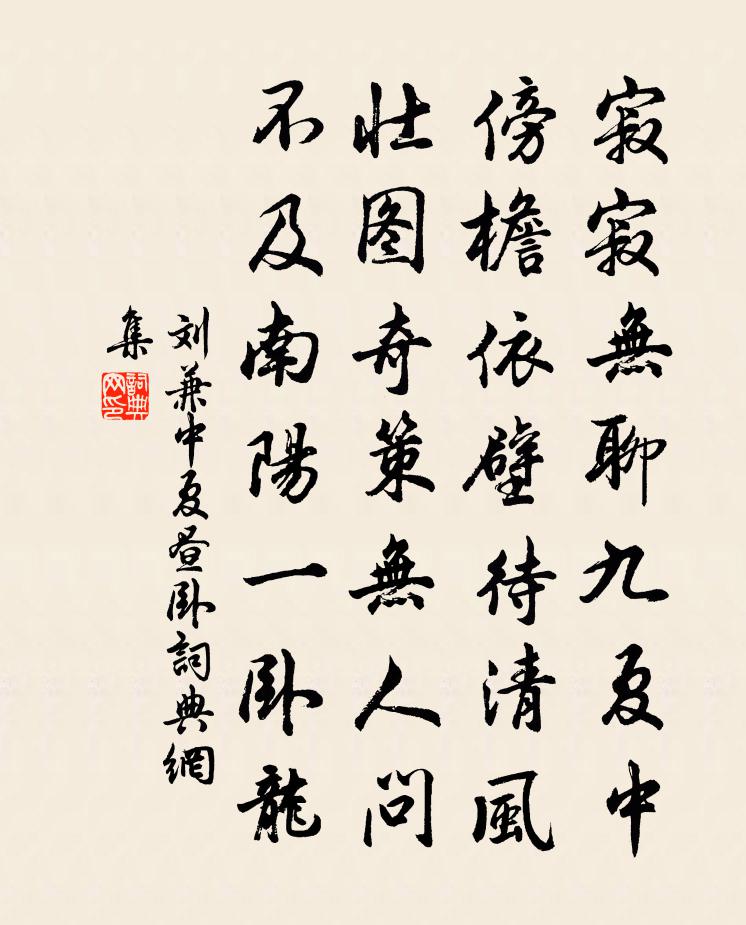 寂寂無聊九夏中
傍檐依壁待清風
壮图奇策無人問
不及南陽一卧龍
刘兼中夏昼卧詞典網
集
詞典网印